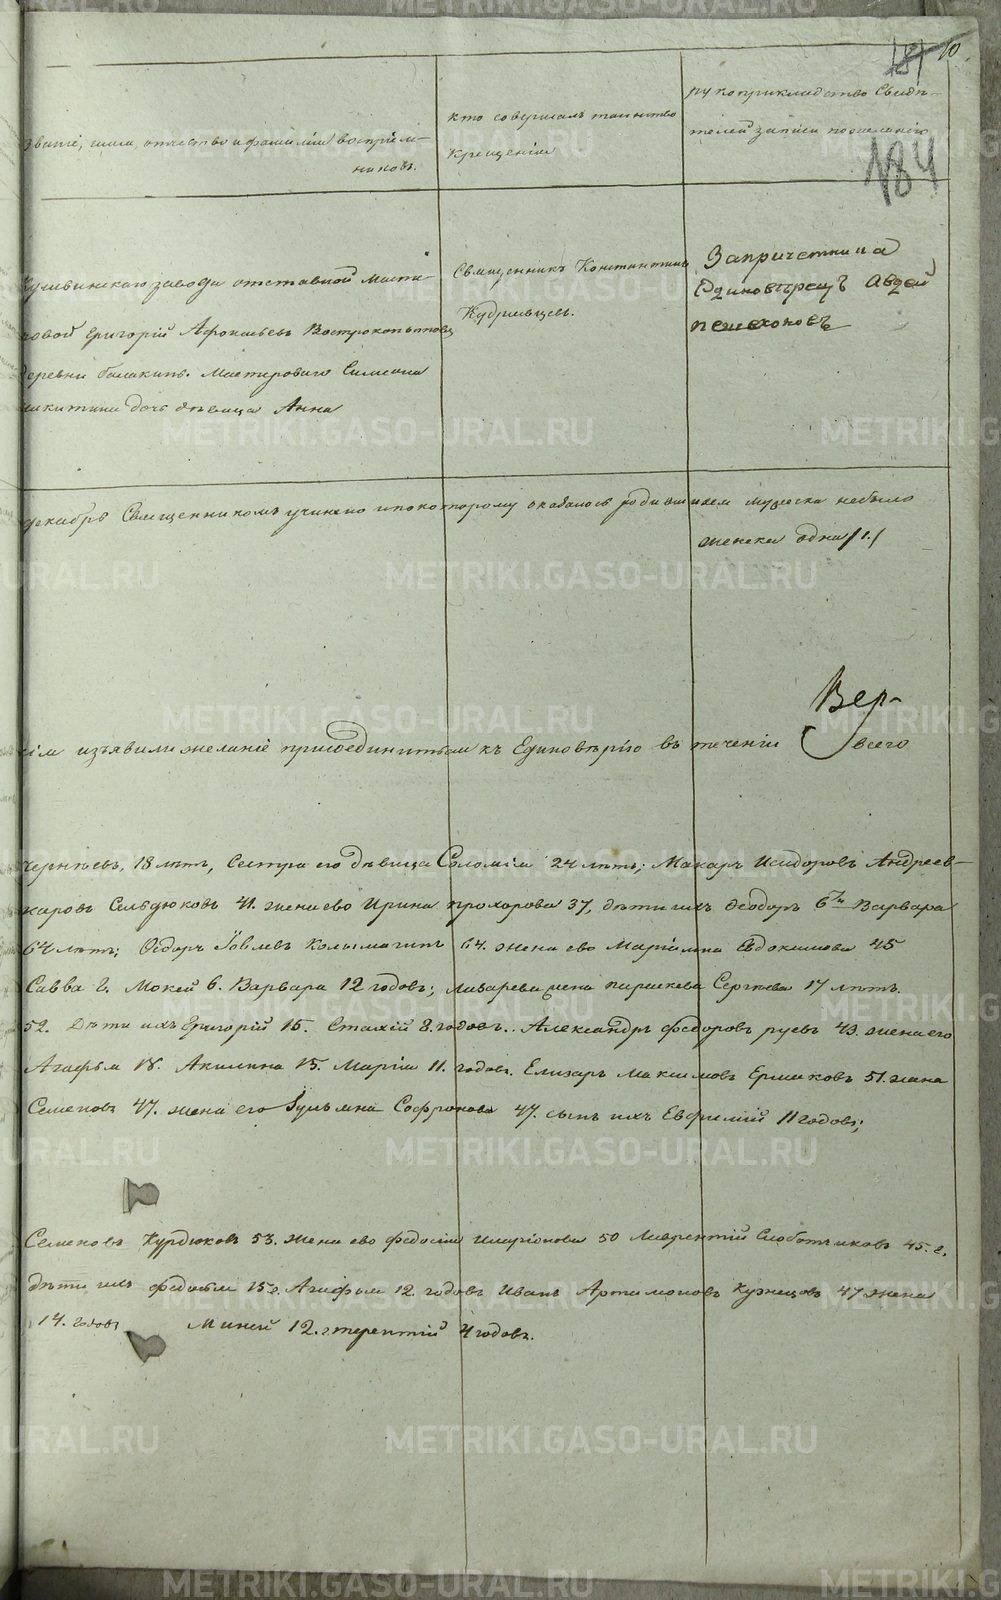 181 10.
184
Званіе, имя, отчество и фамилія воспріем-
никовъ.
кто совершалъ таинство
крещенія
рукоприкладство Свидѣ-
телей записи по желанію
Кушвинскаго завода отставной масте-
ровой Григорій Афонасьевъ Востроконытовъ
деревни балакиной. Мастероваго Симеона
никитина дочь дѣвица Анна
Священникъ Константинъ
Кудрявцевъ.
За причетника
Единовѣрецъ Авдей
пешехоновъ
декабрѣ Священникомъ учинено и по которому оказалось родившихся мужеска небыло
женска одна /1./
Вер-
изъявили желаніе присоединиться къ Единовѣрію въ теченіи всего
18 лѣтъ, Сестра его дѣвица Соломія 24 лѣтъ; Макаръ Исидоровъ Андреев-
Сельдюковъ 41. жена ево Ирина прохорова 37, дѣти ихъ Ѳеодоръ 6ти Варвара
64 лѣтъ; Ѳедоръ Іовлевъ Колымагинъ 64. жена ево Маріамна Евдокимова 45
Савва 2. Мокей 6. Варвара 12 годовъ; жена параскева Сергѣева 17 лѣтъ.
52. Дѣти ихъ Григорій 15. Стахій 8. годовъ. Александръ федоровъ руевъ 43. жена его
Агафья 18. Акилина 15. Марія 11. годовъ. Елизаръ максимовъ Ермаковъ 51. жена
Семеновъ 47. жена его Софронова 47. сынъ ихъ Евфимій 11 годовъ;
Семеновъ Курдюковъ 53. жена ево федосія иларіонова 50 Лаврентій Слободчиковъ 45. г.
дѣти ихъ 15. Агафья 12. годовъ Иванъ Артамоновъ Кузнецовъ 47 жена
14. годовъ Миней 12. терентій 4 годовъ.
METRIKI.GASO-URAL.RU